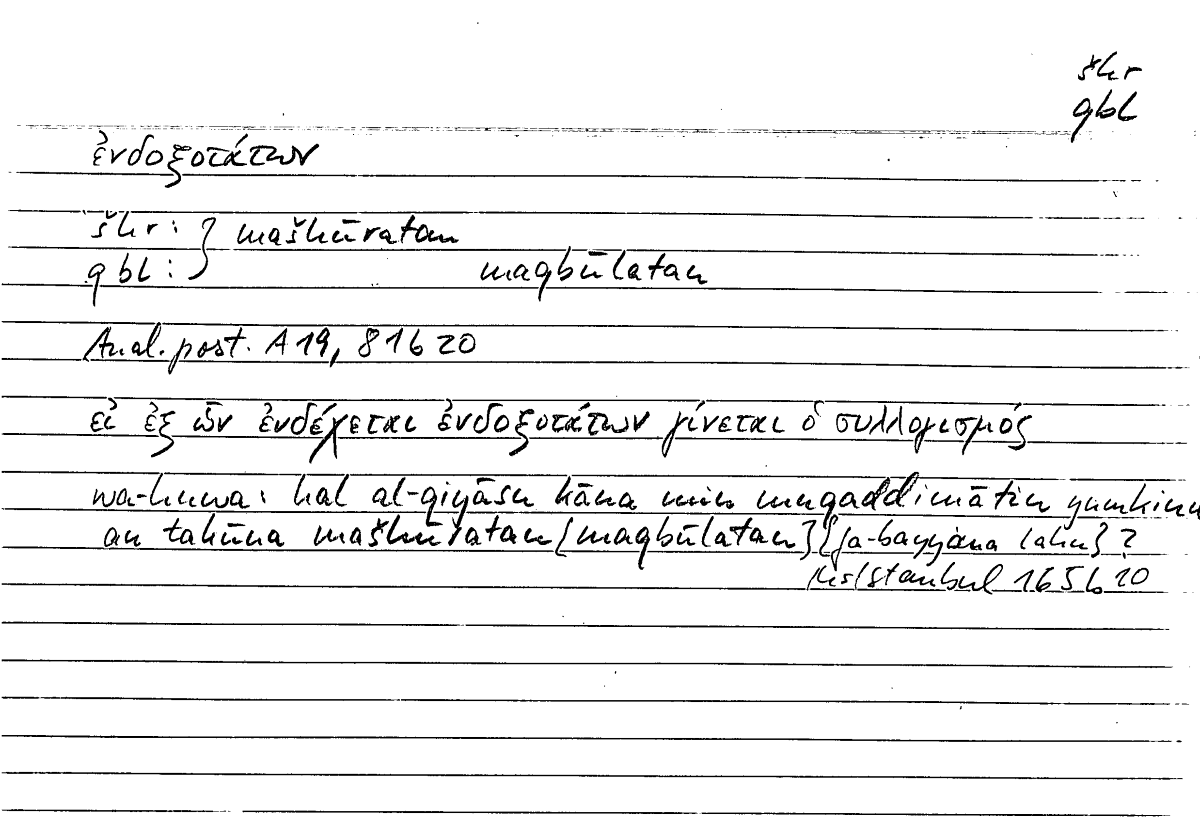 šhr
qbl
ἐνδοξοτάτων
šhr: } mašhūratan
qbl: } maqbūlatan
Anal. post. A 19, 81b20
εἰ ἐξ ὧν ἐνδέχεται ἐνδοξοτάτων γίνεται ὁ συλλογισμός
wa-huwa: hal al-qiyāsu kāna min muqaddimātin yumkinu
an takūna mašhūratan [maqbūlatan] {fa-bayyana lahu} ?
Hs Istanbul 165b